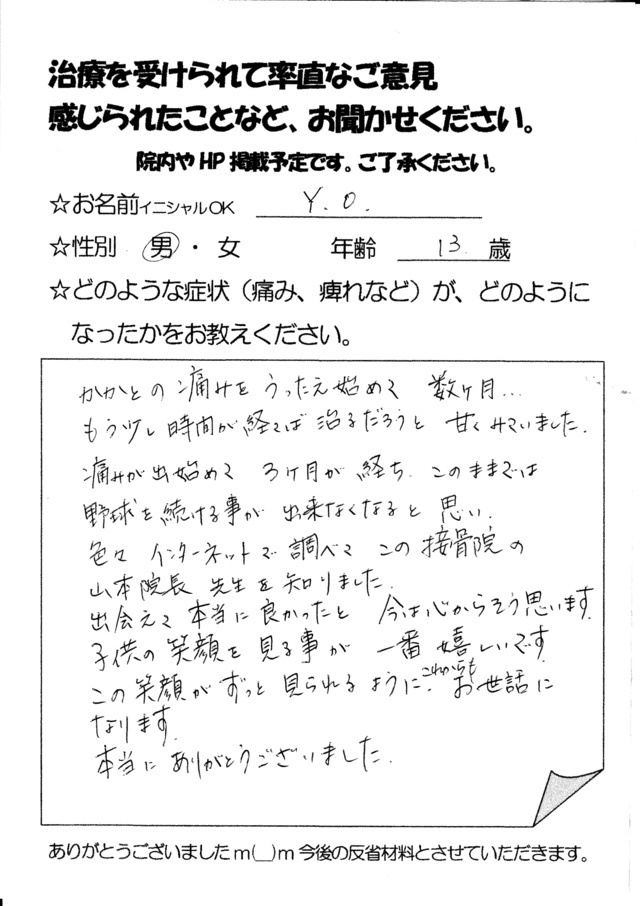 治療を受けられて率直なご意見
感じられたことなど、お聞かせください。
院内やHP掲載予定です。ご了承ください。
☆お名前イニシャルOK Y.O.
☆性別 男・女 年齢 13 歳
☆どのような症状（痛み、痺れなど）が、どのように
なったかをお教えください。
かかとの痛みをうったえ始めて 数ヶ月...
もう少し時間が経てば治るだろうと 甘くみていました.
痛みが出始めて 3ヶ月が経ち. このままでは
野球を続ける事が 出来なくなると思い.
色々 インターネットで調べて この接骨院の
山本院長 先生を知りました.
出会えて本当に良かったと 今は心からそう思います.
子供の笑顔を見る事が 一番嬉しいです
この笑顔がずっと見られるように. これからも お世話に
なります.
本当にありがとうございました.
ありがとうございましたm(__)m今後の反省材料とさせていただきます。